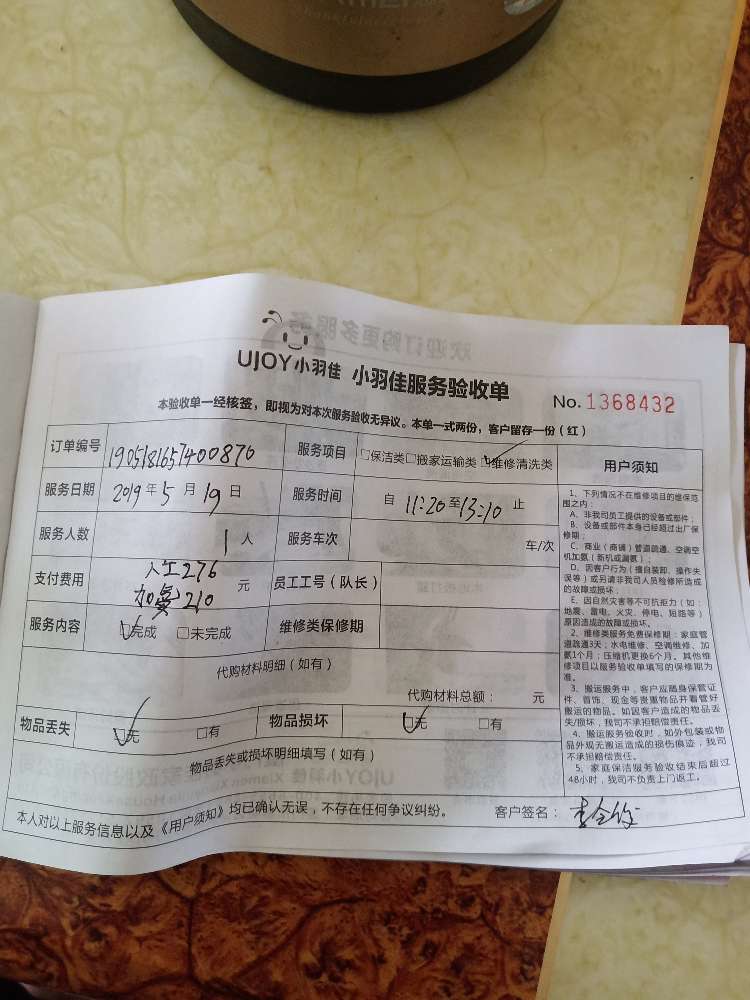 UJOY小羽佳 小羽佳服务验收单
No. 1368432
本验收单一经核签，即视为对本次服务验收无异议。本单一式两份，客户留存一份（红）
订单编号 190518165740087​0 服务项目 □保洁类□搬家运输类□维修清洗类
服务日期 2019年5月19日 服务时间 自 11:20至13:10 止
服务人数 1人 服务车次 车/次
支付费用 人工276 加氟210 元 员工工号（队长）
服务内容 □完成 □未完成 维修类保修期
代购材料明细（如有）
代购材料总额： 元
物品丢失 □无 □有 物品损坏 □无 □有
物品丢失或损坏明细填写（如有）
本人对以上服务信息以及《用户须知》均已确认无误，不存在任何争议纠纷。 客户签名：
用户须知
1、下列情况不在维修项目的维保范
围之内：
A、非我司员工提供的设备或部件；
B、设备或部件本身已经超过出厂保
修期；
C、商业（商铺）管道疏通、空调空
机加氨（新机或漏氨）；
D、因客户行为（擅自装卸、操作失
误等）或另请非我司人员检修所造成
的故障或损坏；
E、因自然灾害等不可抗拒力（如：
地震、雷电、火灾、停电、短路等）
原因造成的故障或损坏。
2、维修类服务免费保修期：家庭管
道疏通3天；水电维修、空调维修、加
氨1个月；压缩机更换6个月，其他维
修项目以服务验收单填写的保修期为
准。
3、搬运服务中，客户应随身保管证
件、首饰、现金等贵重物品并看管好
搬运的物品。如因客户造成的物品丢
失/损坏，我司不承担赔偿责任。
4、搬运服务验收时，如外包装或物
品外观无搬运造成的损伤痕迹，我司
不承担赔偿责任。
5、家庭保洁服务验收结束后超过
48小时，我司不负责上门返工。